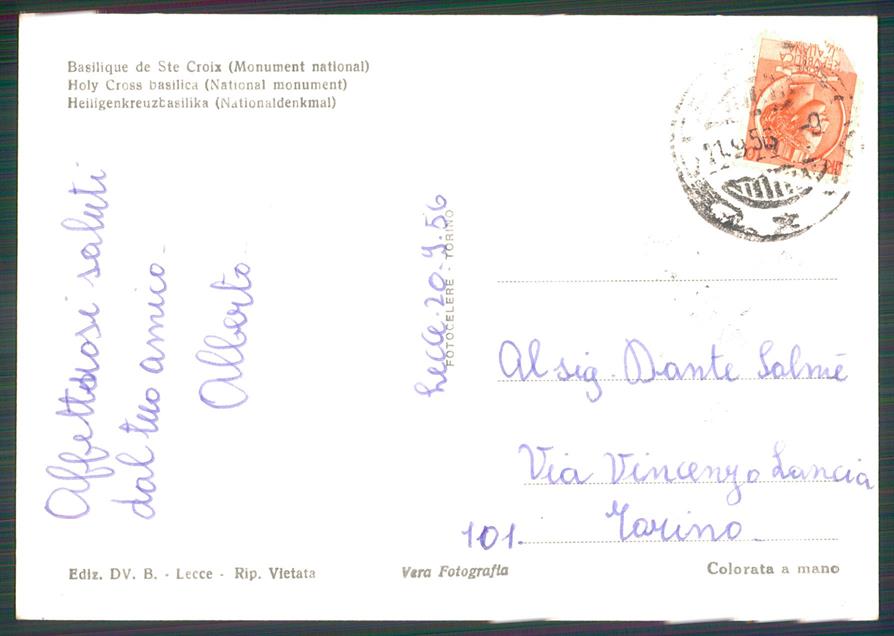 Basilique de Ste Croix (Monument national)
Holy Cross basilica (National monument)
Heiligenkreuzbasilika (Nationaldenkmal)
Affettuosi saluti
dal tuo amico
Alberto
Lecce 20-9-56
FOTOCELERE - TORINO
Al sig. Dante Salmè
Via Vincenzo Lancia
101. Torino
Ediz. DV. B. - Lecce - Rip. Vietata
Vera Fotografia
Colorata a mano